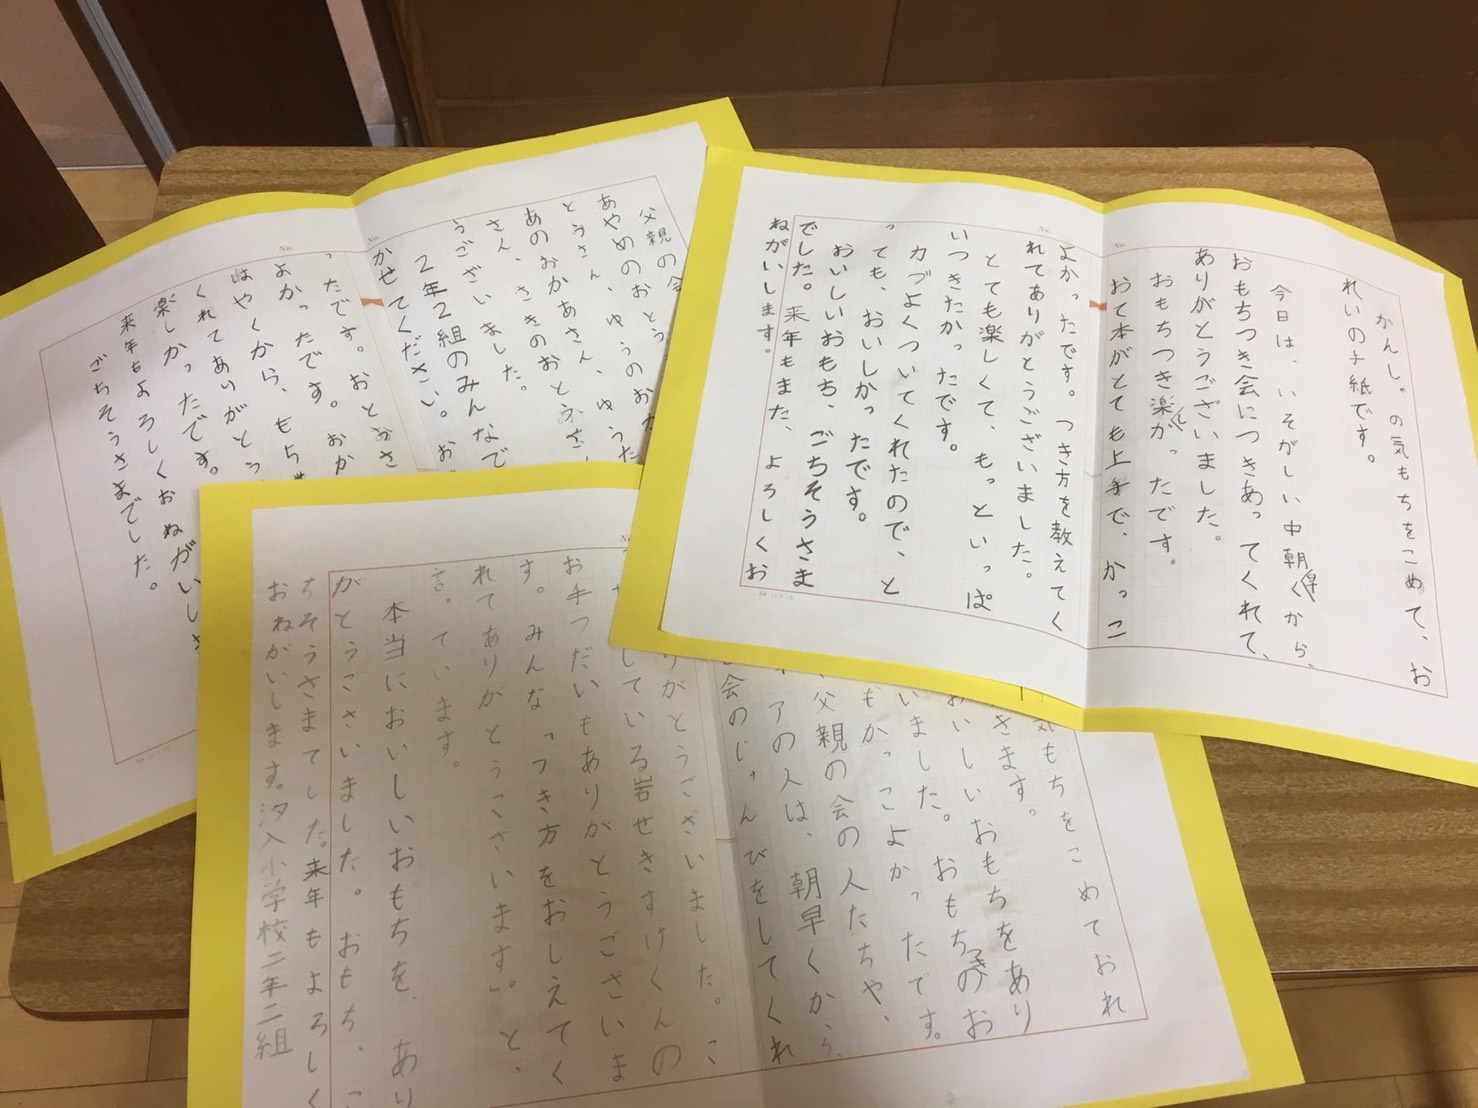 かんしゃの気もちをこめて、お
れいの手紙です。
今日は、いそがしい中朝早くから、
おもちつき会につきあってくれて、
ありがとうございました。
おもちつき楽しかったです。
おて本がとても上手で、かっこ
よかったです。つき方を教えてく
れてありがとうございました。
とても楽しくて、もっといっぱ
いつきたかったです。
力づよくついてくれたので、と
っても、おいしかったです。
おいしいおもち、ごちそうさま
でした。来年もまた、よろしくお
ねがいします。
父親の会
あやめのおとう
とうさん、ゆうのおか
あのおかあさん、ゆうた
さん、さきのおとうさ
うございました。
2年2組のみんなで
かせてください。お
ったです。おとうさ
よかったです。おか
はやくから、もち
くれてありがとう
楽しかったです。
来年もよろしくおねがいしま
ごちそうさまでした。
気もちをこめておれ
きます。
おいしいおもちをあり
いました。おもちつきのお
もかっこよかったです。
父親の会の人たちや、
アの人は、朝早くから、
会のじゅんびをしてくれ
りがとうございました。こ
している岩せきすけくんの
お手つだいもありがとうございま
す。みんな「つき方をおしえてく
れてありがとうございます」。と、
言っています。
本当においしいおもちを、あり
がとうございました。おもち、ご
ちそうさまでした。来年もよろしく
おねがいします。汐入小学校二年二組